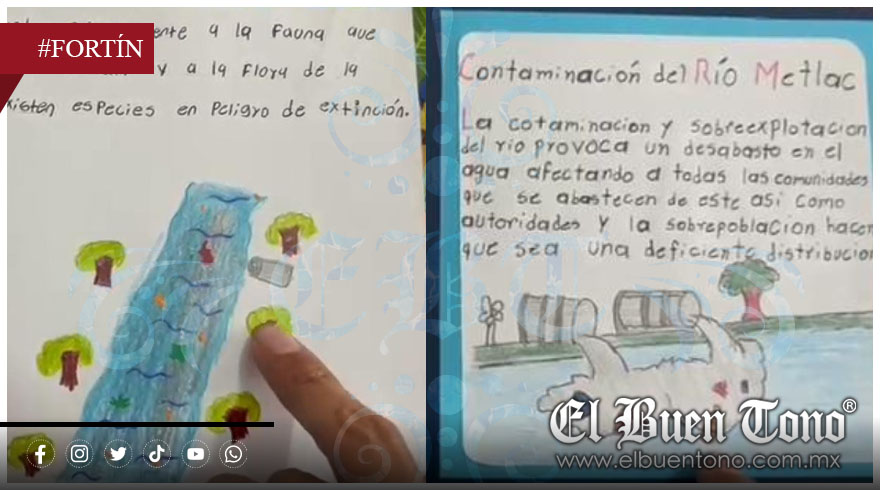 #FORTÍN
ente a la Fauna que
y a la Flora de la
existen especies en Peligro de extinción.
Contaminación del Río Metlac
La cotaminacion y sobreexplotacion
del rio provoca un desabasto en el
agua afectando a todas las comunidades
que se abastecen de este asi como
autoridades y la sobrepoblacion hacen
que sea una deficiente distribucion
El Buen Tono®
www.elbuentono.com.mx